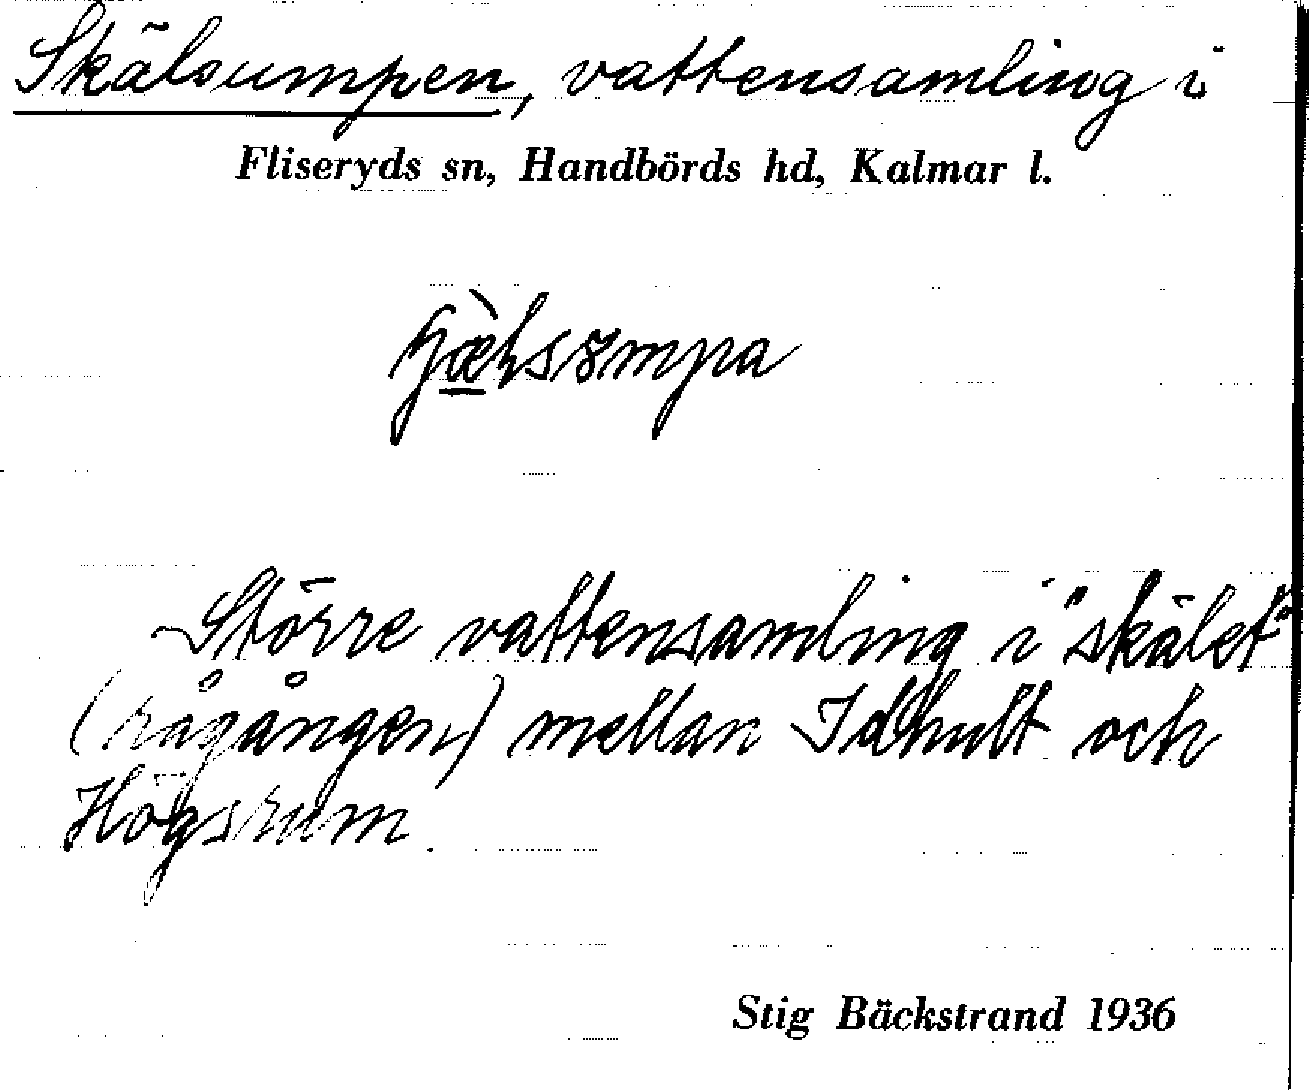 Skälsumpen, vattensamling i
Fliseryds sn, Handbörds hd, Kalmar l.
Större vattensamling i "skälet"
(rågången) mellan Idhult och
Högsrum.
Stig Bäckstrand 1936